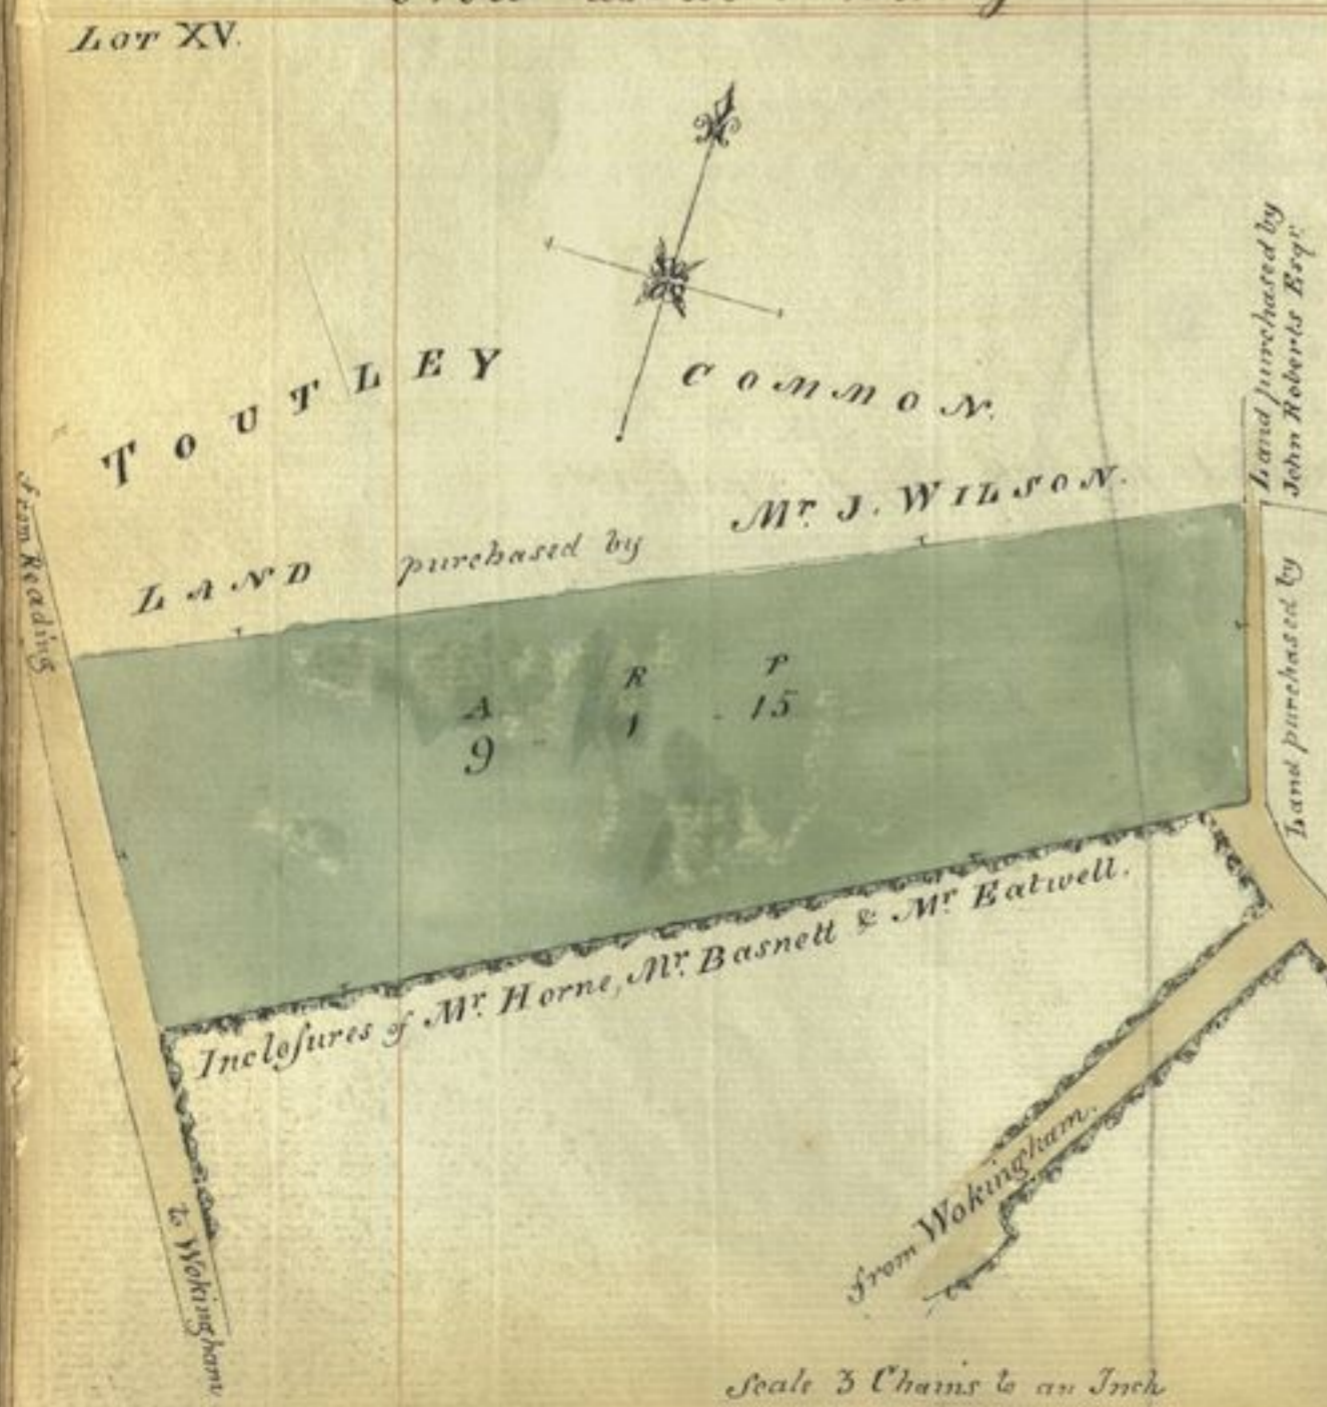 Lot XV.
TOUTLEY COMMON.
LAND purchased by Mr. J. WILSON.
Land purchased by
John Roberts Esqr.
from Reading
A R P
9 - 1 - 15
Land purchased by
Inclosures of Mr. Horne, Mr. Basnett & Mr. Eatwell.
from Wokingham.
to Wokingham
Scale 3 Chains to an Inch